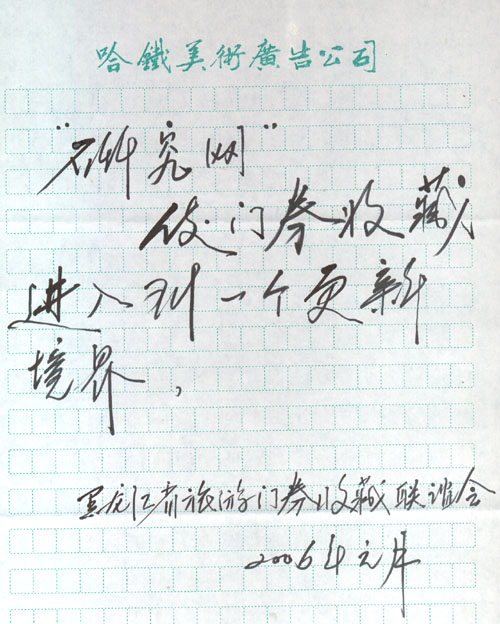 哈鐵美術廣告公司
"研究网"
使门券收藏
进入到一个更新
境界，
黑龙江省旅游门券收藏联谊会
2006年元月